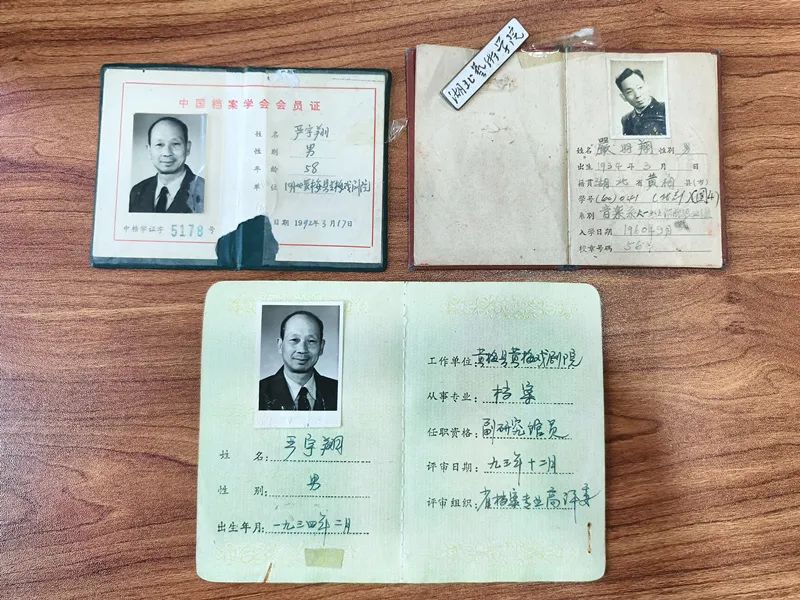 中国档案学会会员证
姓 名 严宇翔
性 别 男
年 龄 58
单 位 湖北黄梅县黄梅戏剧院
日期 1992年3月17日
中档学证字 5178 号
湖北艺术学院
姓名 嚴 翔 性别 男
出生 1934 年 3 月 日
籍贯 湖北 省 黄梅 县(市)
学号 (60)041
系别 音乐系
入学日期 1960年9月
校章号码 56号
姓 名: 严宇翔
性 别: 男
出生年月: 一九三四年二月
工作单位: 黄梅县黄梅戏剧院
从事专业: 档案
任职资格: 副研究馆员
评审日期: 九三年十二月
评审组织: 省档案专业高评委